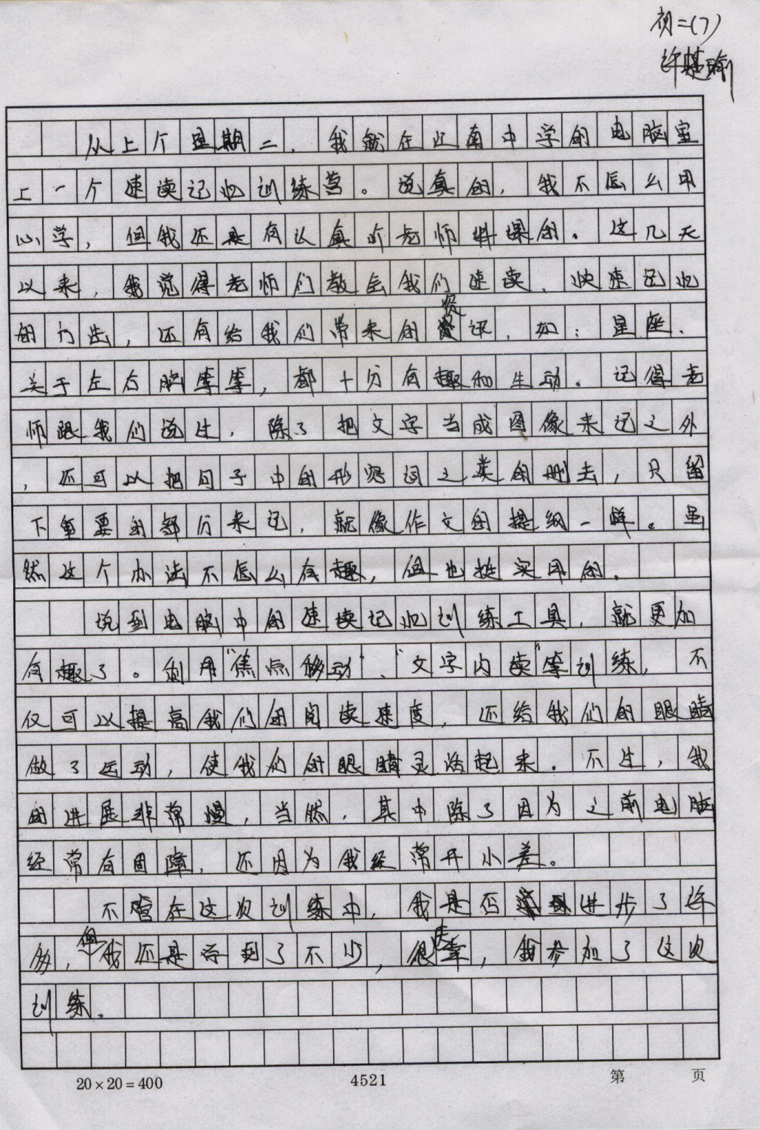 初二(7)
许慧瑜
从上个星期二，我就在迁南中学的电脑室
上一个速读记忆训练营。说真的，我不怎么用
心学，但我还是有认真听老师讲课的。这几天
以来，我觉得老师们教会我们速读、快速记忆
的方法，还有给我们带来的资讯，如：星座、
关于左右脑等等，都十分有趣和生动。记得老
师跟我们说过，除了把文字当成图像来记之外
，还可以把句子中的形容词之类的删去，只留
下重要的部分来记，就像作文的提纲一样。虽
然这个办法不怎么有趣，但也挺实用的。
说到电脑中的速读记忆训练工具，就更加
有趣了。利用“焦点移动”、“文字内读”等训练，不
仅可以提高我们的阅读速度，还给我们的眼睛
做了运动，使我们的眼睛灵活起来。不过，我
的进展非常慢，当然，其中除了因为之前电脑
经常有故障，还因为我经常开小差。
不管在这次训练中，我是否进步了许
多，但我还是学到了不少，很庆幸，我参加了这次
训练。
20×20=400
4521
第 页